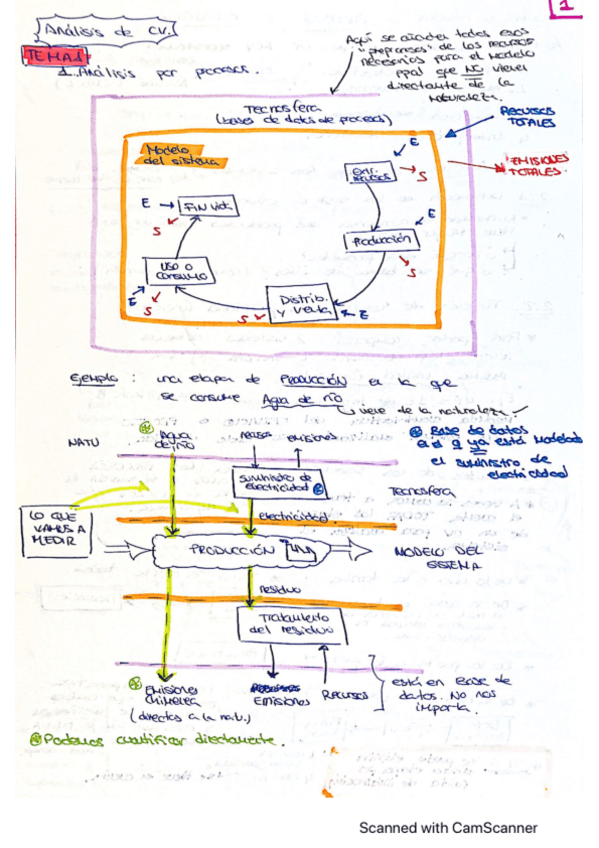 1
Análisis de CV.
TEMA 1
1. Análisis por procesos.
Aquí se añaden todos esos
"preprocesos" de los recursos
necesarios para el modelo
ppal que NO viene
directamente de la
naturaleza.
Tecnosfera
(bases de datos de procesos)
RECURSOS
TOTALES
EMISIONES
TOTALES.
Modelo
del sistema
E
EXTR.
RECURSOS
S
E
FIN vida
S
E
Producción
S
USO o
CONSUMO
E
S
Distrib.
y Venta
S
E
Ejemplo: una etapa de PRODUCCIÓN en la que
se consume Agua de río
viene de la naturaleza
NATU
Agua
de río
emisiones
Base de datos
en la q ya está modelado
el suministro de
electricidad
suministro de
electricidad
Tecnosfera
electricidad
LO QUE
VAMOS A
MEDIR
PRODUCCIÓN
MODELO DEL
SISTEMA
residuo
Tratamiento
del residuo
Emisiones
chimenea
(directas a la nat.)
Emisiones
Recursos
está en Base de
datos. No nos
importa.
Podemos cuantificar directamente.
Scanned with CamScanner